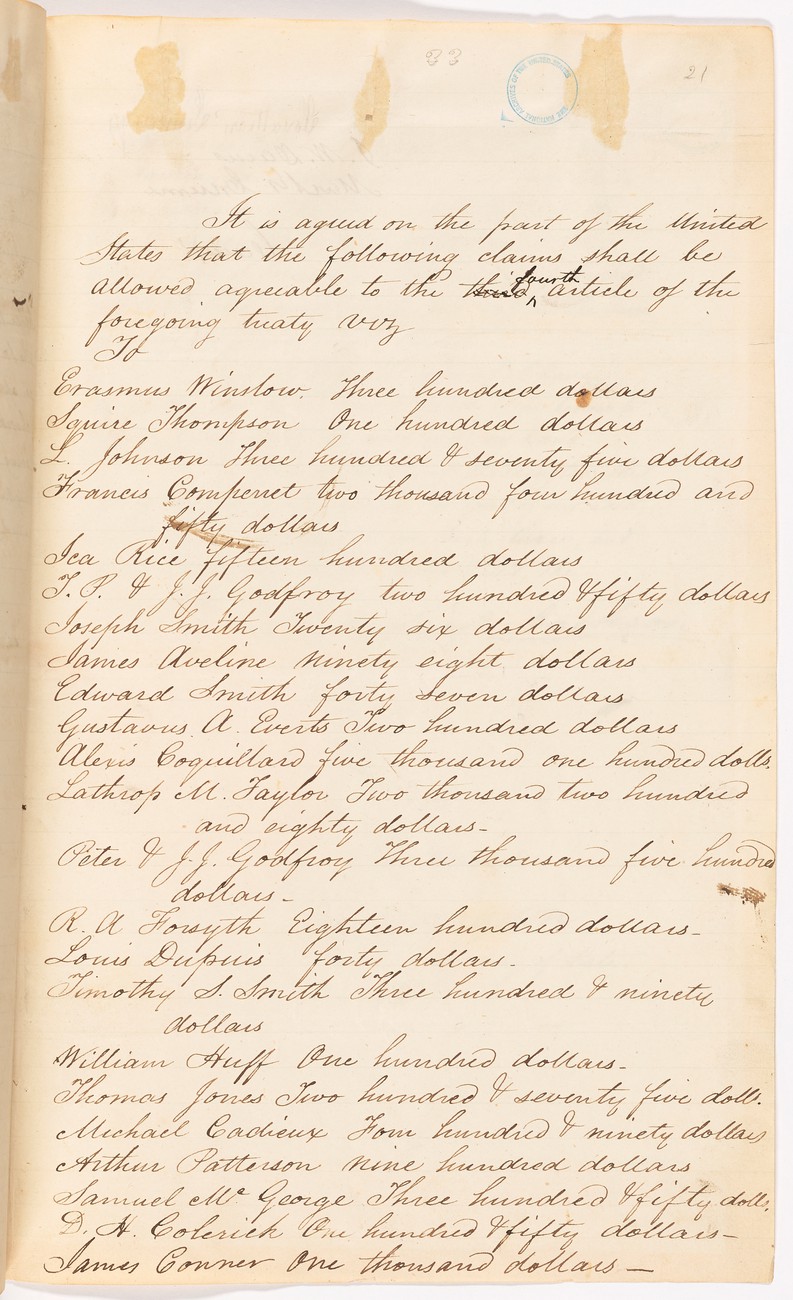 33
21
THE NATIONAL ARCHIVES OF THE UNITED STATES
It is agreed on the part of the United
States that the following claims shall be
allowed agreeable to the third fourth article of the
foregoing treaty viz
To
Erasmus Winslow. Three hundred dollars
Squire Thompson One hundred dollars
L. Johnson Three hundred & seventy five dollars
Francis Comperret two thousand four hundred and
fifty dollars
Ica Rice fifteen hundred dollars
T. P. & J. J. Godfroy two hundred & fifty dollars
Joseph Smith Twenty six dollars
James Aveline ninety eight dollars
Edward Smith forty seven dollars
Gustavus A. Everts Two hundred dollars
Alexis Coquillard five thousand one hundred dolls.
Lathrop M. Taylor Two thousand two hundred
and eighty dollars-
Peter & J. J. Godfroy Three thousand five hundred
dollars-
R. A Forsyth Eighteen hundred dollars-
Louis Dupuis forty dollars-
Timothy S. Smith Three hundred & ninety
dollars
William Huff One hundred dollars-
Thomas Jones Two hundred & seventy five dolls.
Michael Cadieux Four hundred & ninety dollars
Arthur Patterson nine hundred dollars
Samuel Mc George Three hundred & fifty dolls.
D. H. Colerick One hundred & fifty dollars-
James Conner One thousand dollars-